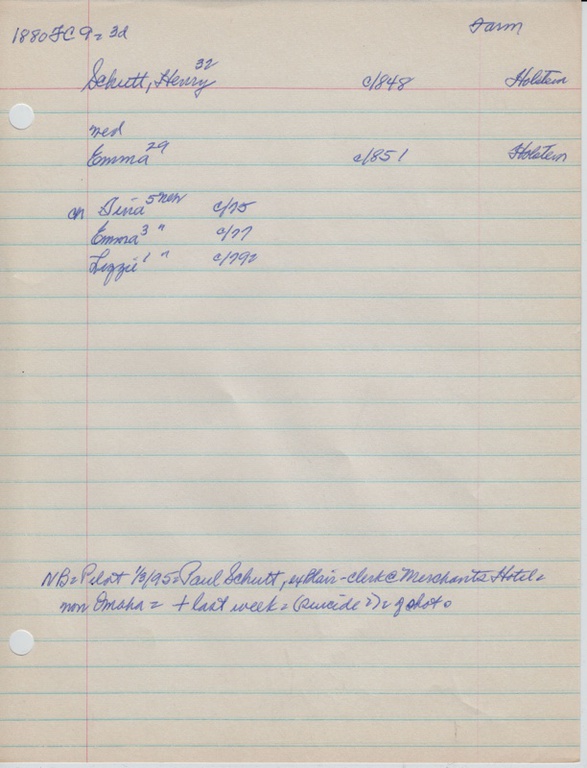 1880 FC 9 = 3d Farm
Schutt, Henry 32 c/848 Holstein
wed
Emma 29 c/851 Holstein
ch Dina 5 new c/75
Emma 3 " c/77
Lizzie 1 " c/792
NB = Pilot 1/3/95 = Paul Schutt, ex Blair - clerk @ Merchants Hotel =
now Omaha = + last week = (suicide?) = g shot.